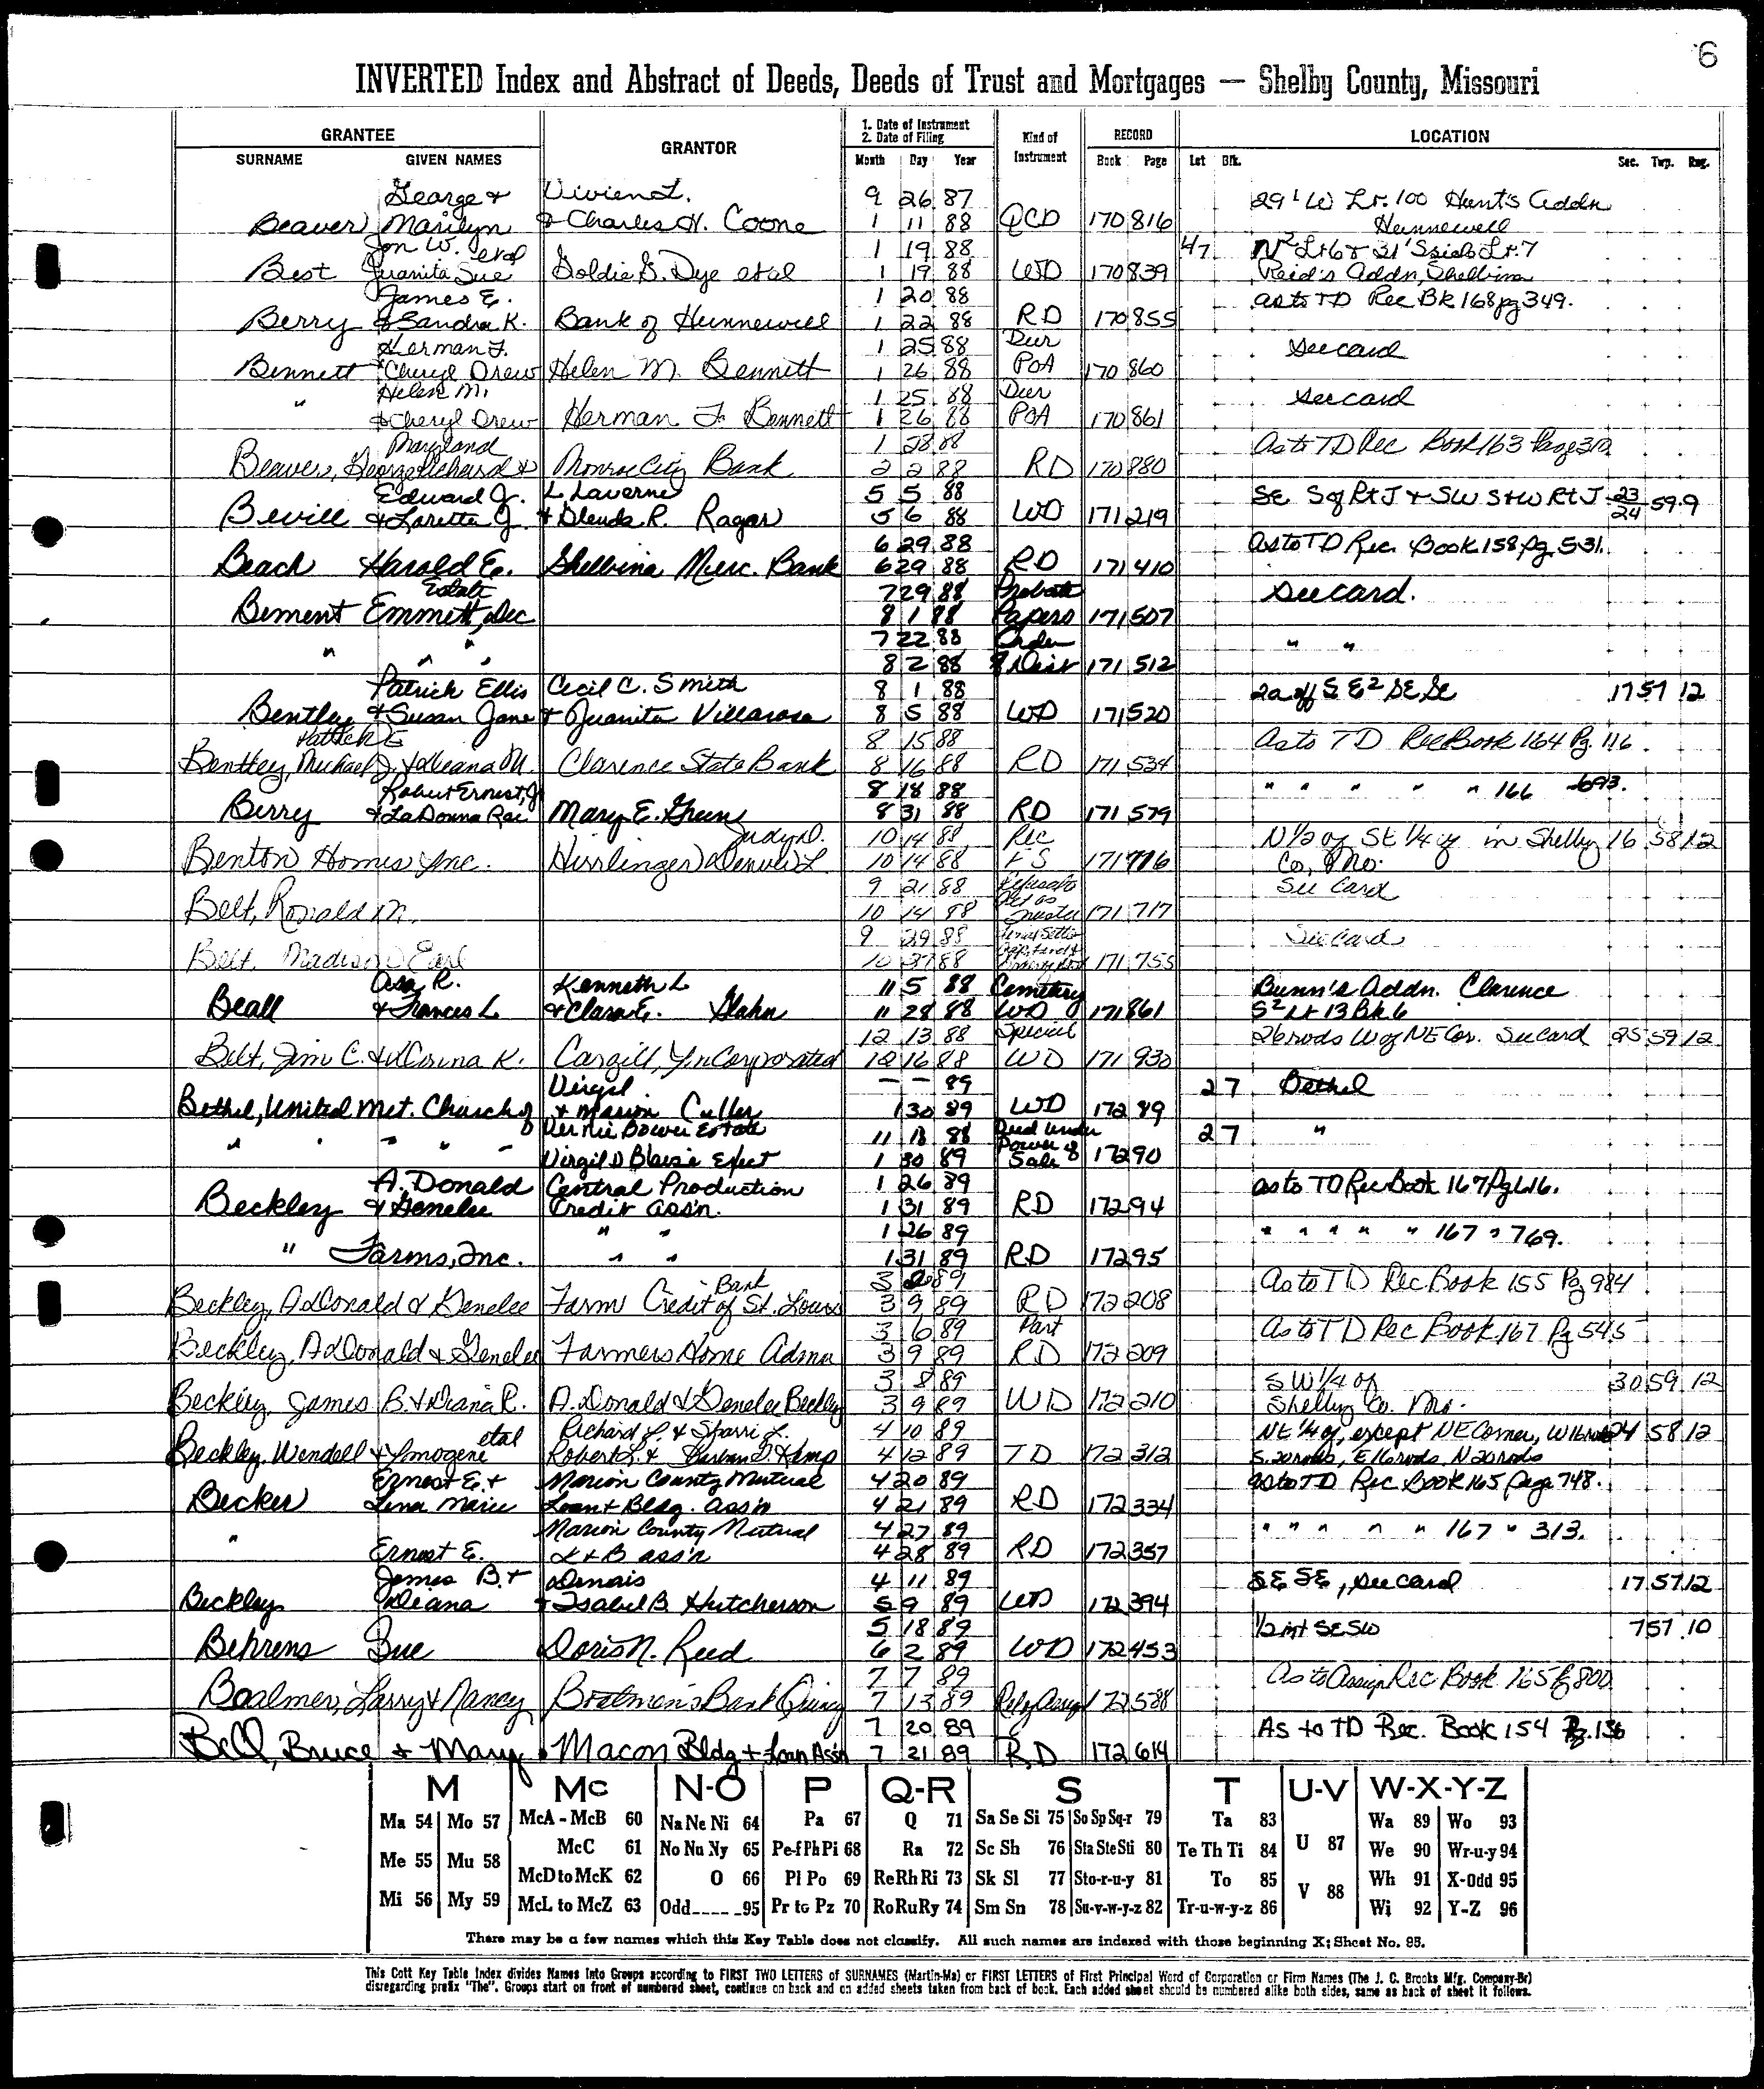 6
INVERTED Index and Abstract of Deeds, Deeds of Trust and Mortgages — Shelby County, Missouri
GRANTEE
SURNAME GIVEN NAMES
GRANTOR
1. Date of Instrument
2. Date of Filing
Month Day Year
Kind of Instrument
RECORD
Book Page
Lot Blk.
LOCATION
Sec. Twp. Rng.
George & Vivien L. 9 26 87 29' W Lt. 100 Hunt's Addn
Beaver Marilyn & Charles H. Coone 1 11 88 QCD 170 816 Hunnewell
Jon W. etal 1 19 88 4 7 N2 Lt 6 & 31' S side Lt. 7
Best Juanita Sue Goldie G. Dye etal 1 19 88 WD 170 839 Reid's Addn, Shelbina
James E. 1 20 88 as to TD Rec Bk 168 pg 349.
Berry & Sandra K. Bank of Hunnewell 1 22 88 RD 170 855
Herman F. 1 25 88 Dur see card
Bennett & Cheryl Drew Helen M. Bennett 1 26 88 POA 170 860
" Helen M. 1 25 88 Dur see card
& Cheryl Drew Herman F. Bennett 1 26 88 POA 170 861
Maryland 1 28 88 As to TD Rec Book 163 Page 310
Beaver, George Richard & Monroe City Bank 2 2 88 RD 170 880
Edward J. L. Laverne 5 5 88 SE Sq Rt J & SW S & W Rt J 23/24 59 9
Bevill & Loretta J. & Glenda R. Ragar 5 6 88 WD 171 219
6 29 88 As to TD Rec. Book 158 Pg. 531.
Beach Harold E. Shelbina Merc. Bank 6 29 88 RD 171 410
Estate 7 29 88 Probate See card.
Bement Emmett, Dec 8 1 88 Papers 171 507
" " " 7 22 88 Order " "
8 2 88 171 512
Patrick Ellis Cecil C. Smith 8 1 88 2a off S E2 SE SE 17 57 12
Bentley & Susan Jane & Juanita Villarosa 8 5 88 WD 171 520
Patrick E 8 15 88 As to TD Rec Book 164 Pg. 116.
Bentley, Michael J. & Deana M. Clarence State Bank 8 16 88 RD 171 534
Robert Ernest, Jr 8 18 88 " " " " " 166 693.
Berry & LaDonna Rae Mary E. Green 8 31 88 RD 171 579
Judy D. 10 14 88 Rec N 1/2 of SE 1/4 of in Shelby 16 58 12
Benton Homes Inc. Hirrlinger Denver L. 10 14 88 KS 171 716 Co, Mo.
9 21 88 See Card
Belt, Ronald M. 10 14 88 Trustee 171 717
9 29 88 See Card
Belt, Madison Earl 10 27 88 171 755
Asa R. Kenneth L 11 5 88 Cemetery Bunn's Addn. Clarence
Beall & Frances L & Clara E. Hahn 11 28 88 WD 171 861 S2 Lt 13 Bk 6
12 13 88 Special 26 rods W of NE Cor. See Card 25 59 12
Belt, Jim C. & DConna K. Cargill, Incorporated 12 16 88 WD 171 930
Virgil — — 89 2 7 Bethel
Bethel, United Met. Church of & Marion Culler 1 30 89 WD 172 89
" " " " " Vernie Bower Estate 11 18 88 Deed under 2 7 "
Virgil D Blaise Exect 1 30 89 Power of Sale 172 90
A. Donald Central Production 1 26 89 as to TD Rec Book 167 Pg 616.
Beckley & Genelee Credit Ass'n. 1 31 89 RD 172 94
" Farms, Inc. " " 1 26 89 " " " " " 167 " 769.
1 31 89 RD 172 95
Bank 3 2 89 As to TD Rec Book 155 Pg 984
Beckley, A Donald & Genelee Farm Credit of St. Louis 3 9 89 RD 172 208
3 6 89 Part As to TD Rec Book 167 Pg 545
Beckley, A Donald & Genelee Farmers Home Admn 3 9 89 RD 172 209
3 8 89 SW 1/4 of 30 59 12
Beckley James B. & Diana R. A. Donald & Genelee Beckley 3 9 89 WD 172 210 Shelby Co. Mo.
etal Richard L. & Sharri L. 4 10 89 NE 1/4 of, except NE Corner, W 16 rods 24 58 12
Beckley, Wendell & Imogene Robert L. & Barbara D. Kemp 4 12 89 TD 172 312 S. 20 rods, E 16 rods, N 20 rods
Ernest E. & Marion County Mutual 4 20 89 as to TD Rec Book 165 page 748.
Becker Lena Marie Loan & Bldg. Ass'n 4 21 89 RD 172 334
" Marion County Mutual 4 27 89 " " " " " 167 " 313.
Ernest E. L & B ass'n 4 28 89 RD 172 357
James B. & Dennis 4 11 89 SE SE, see card 17 57 12
Beckley Diana & Isabel B. Hutcherson 5 9 89 WD 172 394
5 18 89 1/2 int SE SW 7 57 10
Behrens Sue Doris N. Reed 6 2 89 WD 172 453
7 7 89 As to Assign Rec Book 165 Pg 800
Bealmer, Larry & Nancy Boatmen's Bank Quincy 7 13 89 Rel of Assign 172 588
7 20 89 As to TD Rec. Book 154 Pg. 136
Bell, Bruce & Mary Macon Bldg & Loan Ass'n 7 21 89 RD 172 614
M Mc N-O P Q-R S T U-V W-X-Y-Z
Ma 54 Mo 57 McA - McB 60 Na Ne Ni 64 Pa 67 Q 71 Sa Se Si 75 So Sp Sq-r 79 Ta 83 Wa 89 Wo 93
McC 61 No Nu Ny 65 Pe-f Ph Pi 68 Ra 72 Sc Sh 76 Sta Ste Sti 80 Te Th Ti 84 U 87 We 90 Wr-u-y 94
Me 55 Mu 58 McD to McK 62 O 66 Pl Po 69 Re Rh Ri 73 Sk Sl 77 Sto-r-u-y 81 To 85 Wh 91 X-Odd 95
Mi 56 My 59 McL to McZ 63 Odd---- -95 Pr to Pz 70 Ro Ru Ry 74 Sm Sn 78 Su-v-w-y-z 82 Tr-u-w-y-z 86 V 88 Wi 92 Y-Z 96
There may be a few names which this Key Table does not classify. All such names are indexed with those beginning X; Sheet No. 95.
This Cott Key Table Index divides Names Into Groups according to FIRST TWO LETTERS of SURNAMES (Martin-Ma) or FIRST LETTERS of First Principal Word of Corporation or Firm Names (The J. C. Brooks Mfg. Company-Br)
disregarding prefix "The". Groups start on front of numbered sheet, continue on back and on added sheets taken from back of book. Each added sheet should be numbered alike both sides, same as back of sheet it follows.